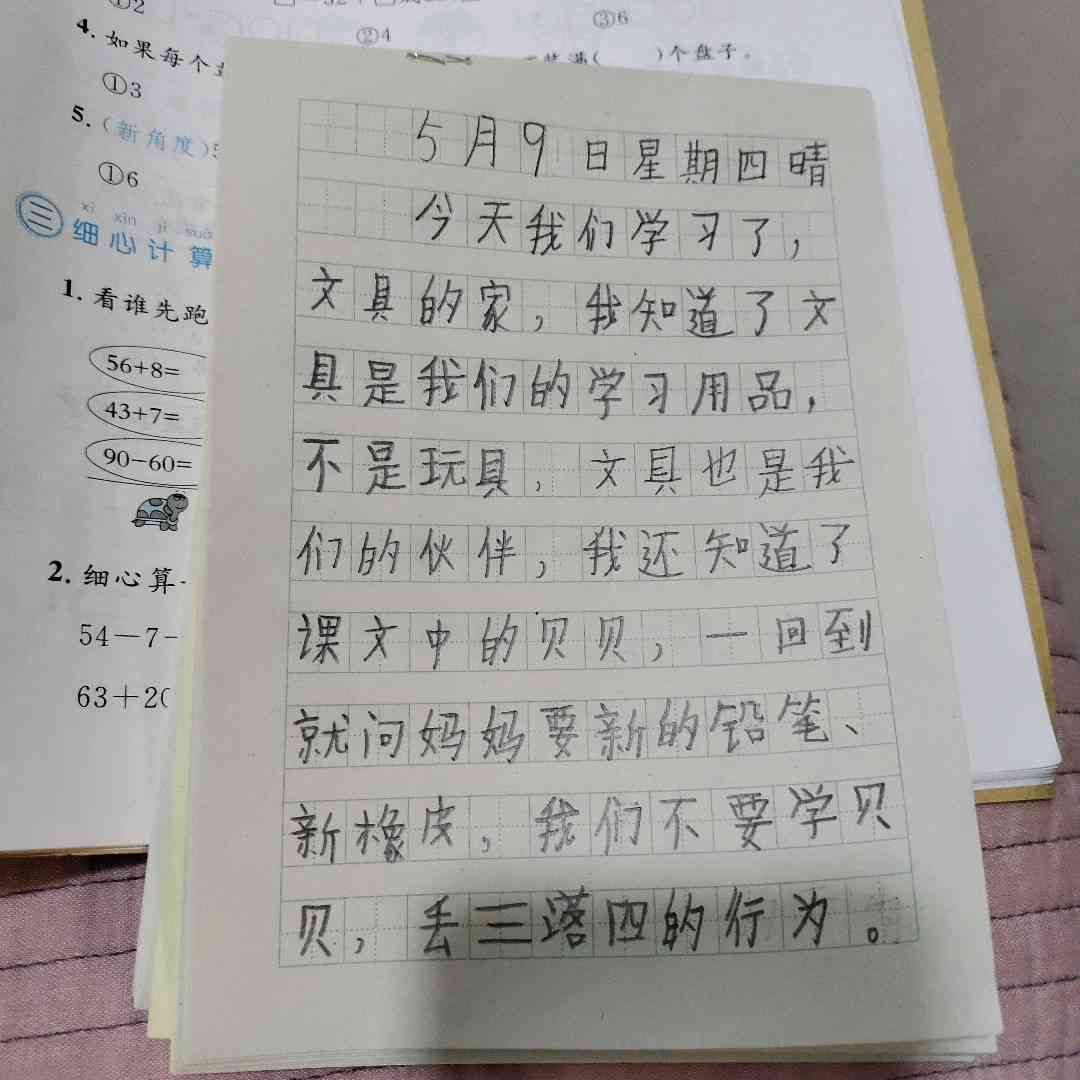 ①2
②4
③6
4. 如果每个
装满( )个盘子。
①3
5. (新角度)5
①6
xì xīn jì suàn
三 细心计算
1. 看谁先跑
56+8=
43+7=
90-60=
2. 细心算
54-7-
63+20
5月9日星期四晴
今天我们学习了，
文具的家，我知道了文
具是我们的学习用品，
不是玩具，文具也是我
们的伙伴，我还知道了
课文中的贝贝，一回到
就问妈妈要新的铅笔、
新橡皮，我们不要学贝
贝，丢三落四的行为。